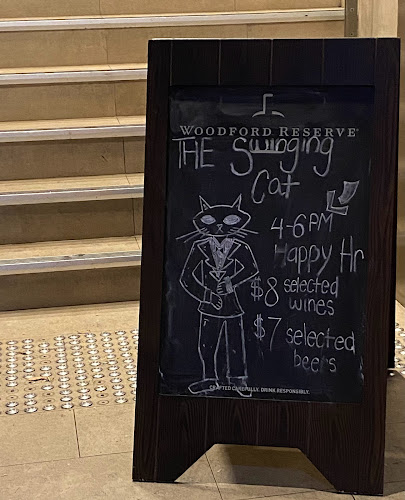 WOODFORD RESERVE®
THE Swinging
Cat
4-6PM
Happy Hr
$8 selected
wines
$7 selected
beers
CRAFTED CAREFULLY. DRINK RESPONSIBLY.